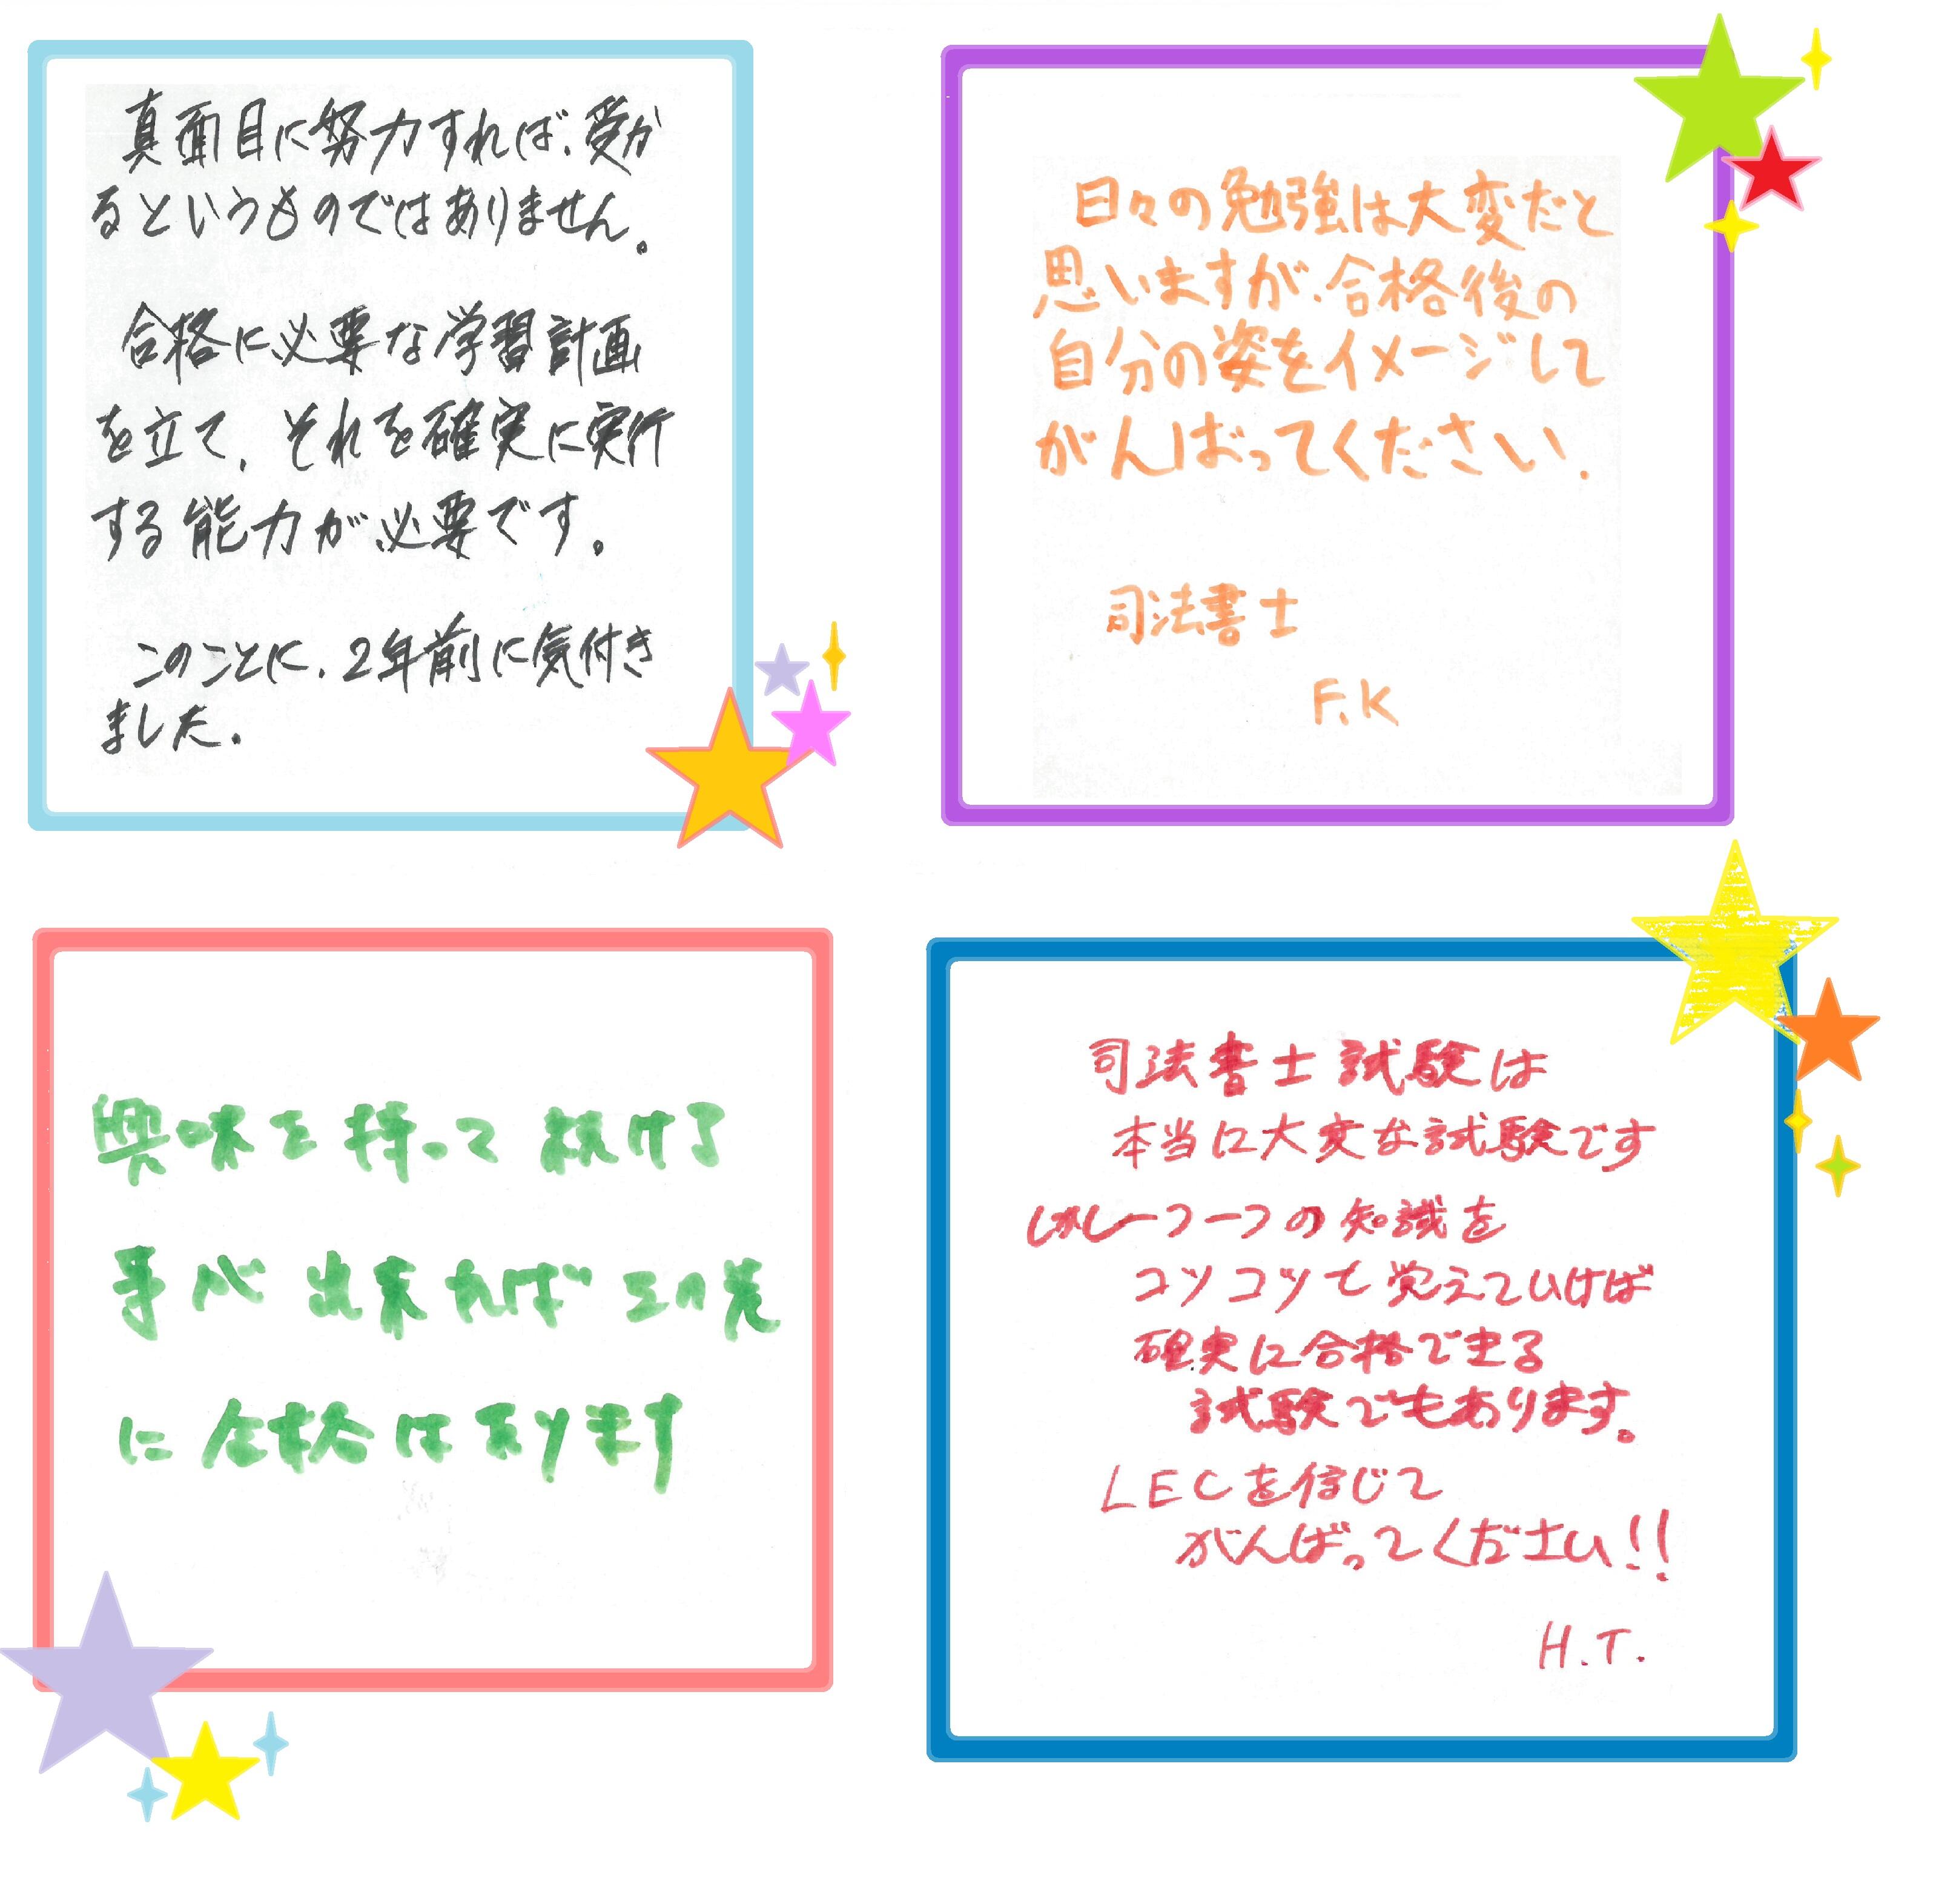 真面目に努力すれば、受か
るというものではありません。
合格に必要な学習計画
を立て、それを確実に実行
する能力が必要です。
このことに、2年前に気付き
ました。
日々の勉強は大変だと
思いますが、合格後の
自分の姿をイメージして
がんばってください.
司法書士
F.K
興味を持って続ける
事が出来ればその先
に合格はあります
司法書士試験は
本当に大変な試験です
しかし一つ一つの知識を
コツコツと覚えていけば
確実に合格できる
試験でもあります。
LECを信じて
がんばってください!!
H.T.